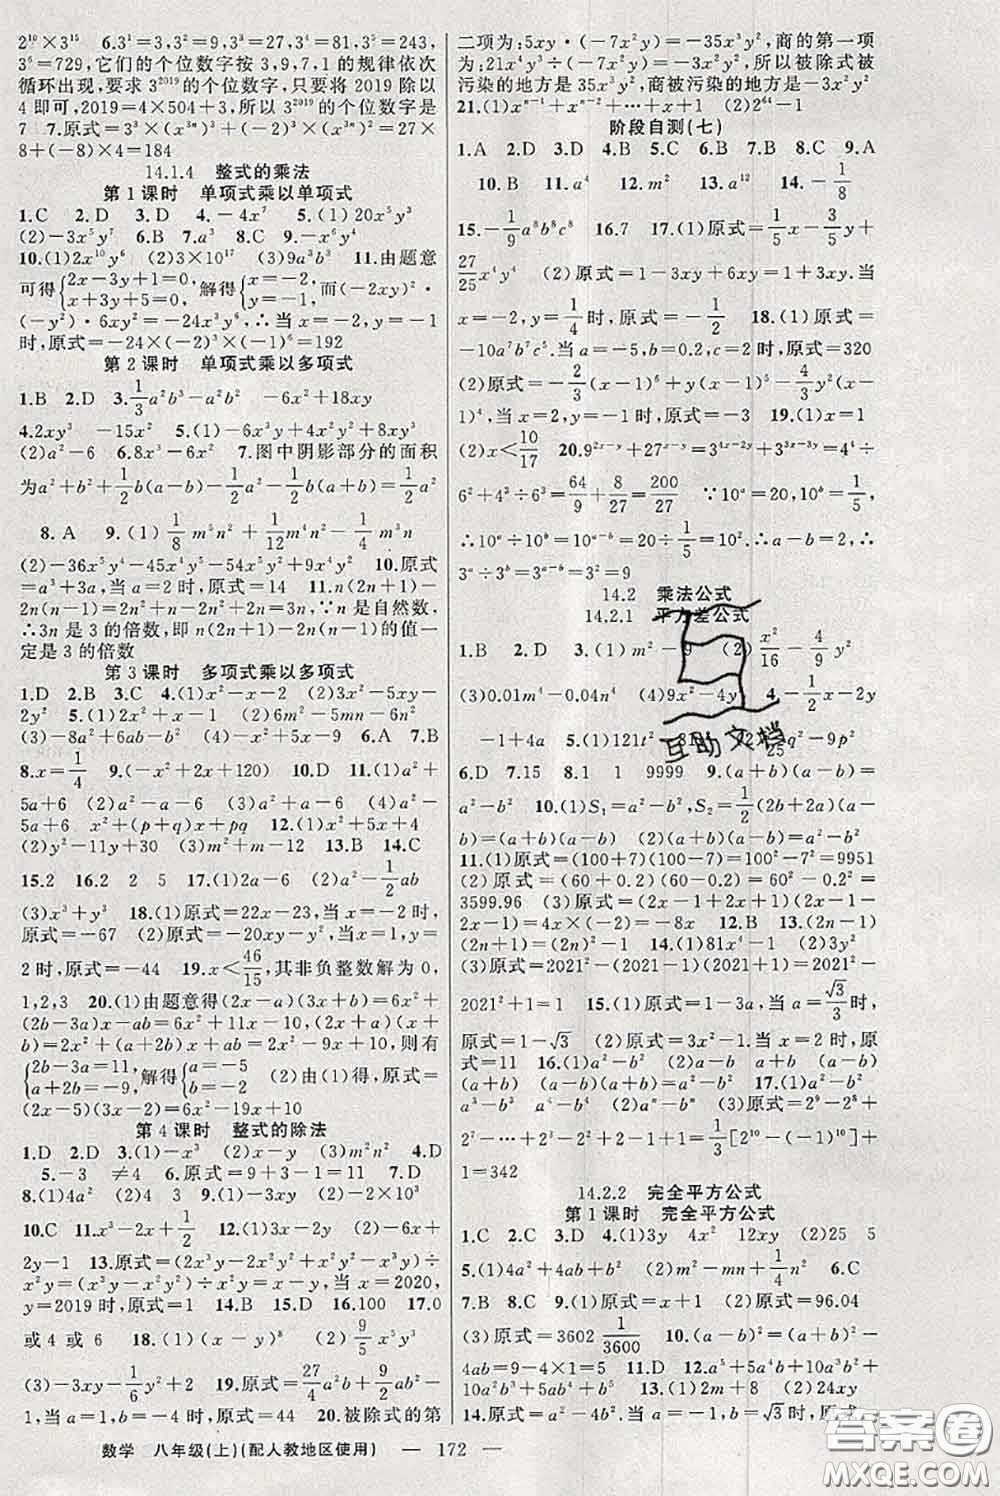 2¹⁰×3¹⁵　6.3¹=3,3²=9,3³=27,3⁴=81,3⁵=243,
3⁶=729,它们的个位数字按3,9,7,1的规律依次
循环出现,要求3²⁰¹⁹的个位数字,只要将2019除以
4即可,2019=4×504+3,所以3²⁰¹⁹的个位数字是
7　7.原式=3³×(x³ⁿ)²+(-2)³×(x³ⁿ)²=27×
8+(-8)×4=184
14.1.4　整式的乘法
第1课时　单项式乘以单项式
1.C　2.D　3.D　4.-4x⁷　5.(1)20x⁵y³
(2)-3x⁵y⁷　6.B　7.a³　8.C　9.-x⁶y⁴
10.(1)2x¹⁰y⁶　(2)3×10¹⁷　(3)9a³b³　11.由题意
可得{2x-3y+1=0, x+3y+5=0, 解得{x=-2, y=-1, 而(-2xy)²·
(-y²)·6xy²=-24x³y⁶,∴当x=-2,y=-1
时,原式=-24×(-2)³×(-1)⁶=192
第2课时　单项式乘以多项式
1.B　2.D　3.1/3a²b³-a²b²　-6x²+18xy
4.2xy³　-15x²　5.(1)6x³y+4x²y²+8xy³
(2)a²-6　6.8x³-6x²　7.图中阴影部分的面积
为a²+b²+1/2b(a-b)-1/2a²-1/2b(a+b)=1/2a²
8.A　9.(1)1/8m⁵n²+1/12m⁴n²-1/4m³n
(2)-36x⁵y⁴-45x⁴y⁵-54x⁵y⁵　10.原式
=a³+3a+1,当a=2时,原式=14　11.n(2n+1)-
2n(n-1)=2n²+n-2n²+2n=3n,∵n是自然数,
∴3n是3的倍数,即n(2n+1)-2n(n-1)的值一
定是3的倍数
第3课时　多项式乘以多项式
1.D　2.B　3.C　4.(1)x²-x-2　(2)3x²-5xy-
2y²　5.(1)2x²+x-1　(2)6m²-5mn-6n²
(3)-8a²+6ab-b²　(4)-x²+5x　6.A　7.B
8.x=1/4　9.(-x²+2x+120)　10.D　11.(1)a²+
5a+6　(2)a²-a-6　(3)a²+a-6　(4)a²-
5a+6　x²+(p+q)x+pq　12.(1)x²+5x+4
(2)y²-11y+30　(3)m²+m-12　13.B　14.C
15.2　16.2　2　5　17.(1)2a-6　(2)a²-1/2ab
(3)x³+y³　18.(1)原式=22x-23,当x=-2时,
原式=-67　(2)原式=-20xy-y²,当x=1,y=
2时,原式=-44　19.x<46/15,其非负整数解为0,
1,2,3　20.(1)由题意得(2x-a)(3x+b)=6x²+
(2b-3a)x-ab=6x²+11x-10,(2x+a)(x+
b)=2x²+(a+2b)x+ab=2x²-9x+10,则有
{2b-3a=11, a+2b=-9, 解得{a=-5, b=-2　(2)由(1)得,原式=
(2x-5)(3x-2)=6x²-19x+10
第4课时　整式的除法
1.D　2.D　3.(1)-x³　(2)x-y　(3)m²n²　4.D
5.-3　≠4　6.原式=9+3-1=11　7.D
8.(1)4a²　(2)4　3　9.(1)-3xy　(2)-2×10³
10.C　11.x³-2x+1/2　12.(1)3x-2y　(2)-4x+
2y-1　13.原式=(2x³y-2x²y²+x²y²-x³y)÷
x²y=(x³y-x²y²)÷x²y=x-y,当x=2020,
y=2019时,原式=1　14.B　15.D　16.100　17.0
或4或6　18.(1)(x-y)⁸　(2)9/5x⁵y³
(3)-3xy-1/6y²+2　19.原式=27/4a²b+9/4ab²-
1,当a=1,b=-4时,原式=44　20.被除式的第
二项为:5xy·(-7x²y)=-35x³y²,商的第一项
为:21x⁴y³÷(-7x²y)=-3x²y²,所以被除式被
污染的地方是-35x³y²,商被污染的地方是-3x²y²
21.(1)xⁿ⁻¹+xⁿ⁻²+…+x+1　(2)2⁶⁴-1
阶段自测(七)
1.A　2.D　3.D　4.B　5.C　6.B　7.C　8.C　9.A
10.B　11.a⁴　12.m²　13.a¹²　14.-1/8
15.-1/9a⁸b⁸c⁸　16.7　17.(1)原式=1/5x-3/5y+
27/25x⁴y⁴　(2)原式=1-3xy+6xy=1+3xy.当
x=-2,y=1/4时,原式=-1/2　18.(1)原式=
-10a⁷b⁷c⁵.当a=-5,b=0.2,c=2时,原式=320
(2)原式=-2/3(x-1)⁶+y(x-1)⁵-4/3y²(x-
1)⁴,当x=2,y=-1时,原式=-3　19.(1)x=1
(2)x<10/17　20.9²ˣ⁻ʸ+27ˣ⁻ʸ=3⁴ˣ⁻²ʸ+3³ˣ⁻³ʸ=4⁴÷
6²+4³÷6³=64/9+8/27=200/27　∵10ᵃ=20,10ᵇ=1/5,
∴10ᵃ÷10ᵇ=10ᵃ⁻ᵇ=20÷1/5=10².∴a-b=2,∴
3ᵃ÷3ᵇ=3ᵃ⁻ᵇ=3²=9
14.2　乘法公式
14.2.1　平方差公式
1.B　2.D　3.(1)m²-9　(2)x²/16-4/9y²
(3)0.01m⁴-0.01n⁴　(4)9x²-4y　4.-1/2x-2y
-1+4a　5.(1)121t²　81　25q²-9p²
6.D　7.15　8.1　1　9999　9.(a+b)(a-b)=
a²-b²　10.(1)S₁=a²-b²,S₂=1/2(2b+2a)(a-
b)=(a+b)(a-b)　(2)(a+b)(a-b)=a²-b²
11.(1)原式=(100+7)(100-7)=100²-7²=9951
(2)原式=(60+0.2)(60-0.2)=60²-0.2²=
3599.96　(3)原式=(2x-1+2x+1)(2x-1-
2x-1)=4x×(-2)=-8x　12.B　13.(2n-1)
(2n+1)=(2n)²-1　14.(1)81x⁴-1　(2)3y²
(3)原式=2021²-(2021-1)(2021+1)=2021²-
2021²+1=1　15.(1)原式=1-3a,当a=√3/3时,
原式=1-√3　(2)原式=3x²-1.当x=2时,原
式=11　16.(1)a²-b²　(2)a-b　a+b　(a-b)
(a+b)　a-b　a+b　(2)aⁿ-bⁿ　17.(1)a²-b²
a³-b³　a⁴-b⁴　(2)aⁿ-bⁿ　(3)原式=2⁹-2⁸+
2⁷-…+2³-2²+2-1+1=1/3[2¹⁰-(-1)¹⁰]+
1=342
14.2.2　完全平方公式
第1课时　完全平方公式
1.C　2.C　3.D　4.(1)3y　4x²　12xy　(2)25　5
5.(1)4a²+4ab+b²　(2)m²-mn+1/4n²　6.C
7.B　8.C　9.(1)原式=x+1　(2)原式=96.04
(3)原式=3602 1/3600　10.(a-b)²=(a+b)²-
4ab=9-4×1=5　11.D　12.a⁵+5a⁴b+10a³b²
+10a²b³+5ab⁴+b⁵　13.(1)2m+8　(2)24xy
14.原式=2ab,当a=√3,b=√3时,原
数学　八年级(上)(配人教地区使用)　— 172 —
互助文档
答案圈
MXQE.COM